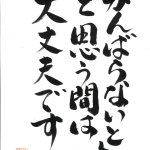 がんばらないと
と思う間は
大丈夫です